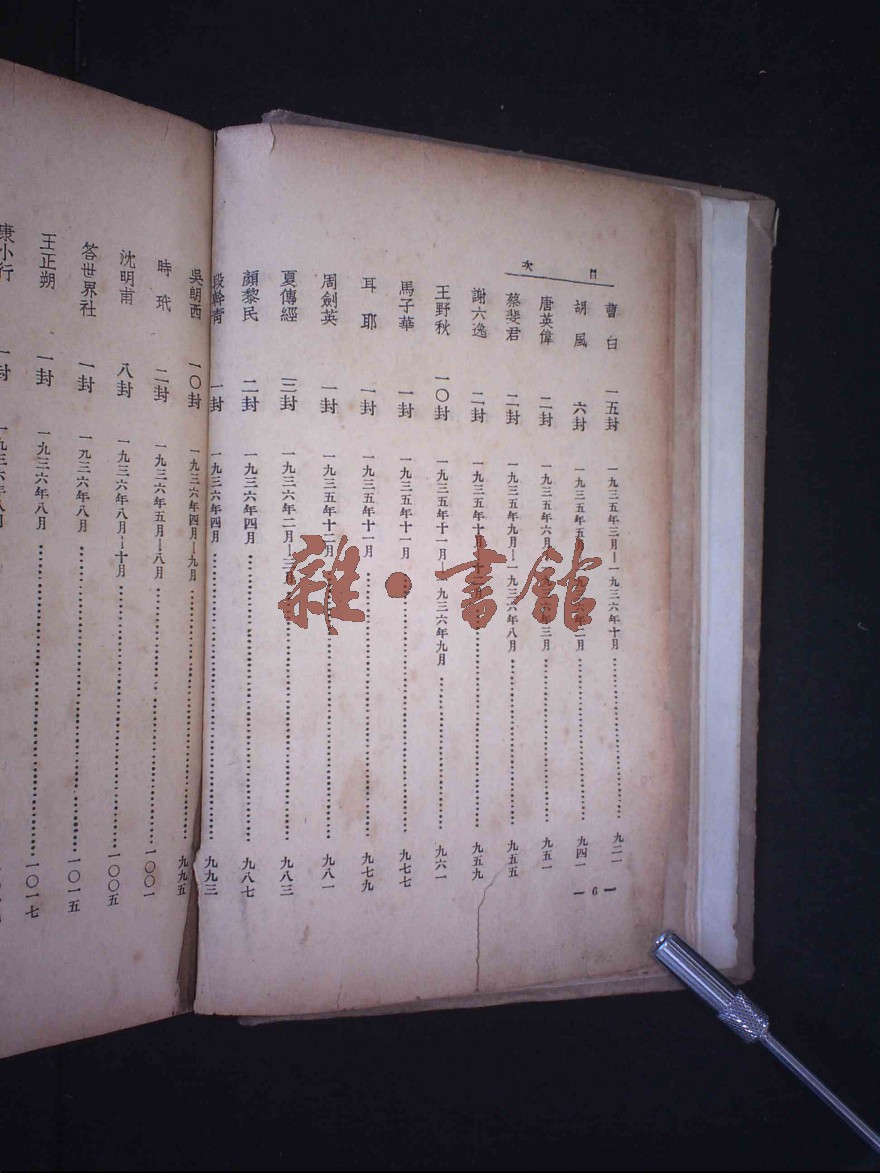 目次
曹白 一五封 一九三五年三月—一九三六年十月 九二一
胡風 六封 九四一
唐英偉 二封 一九三五年六月 三月 九五一
蔡斐君 二封 一九三五年九月—一九三六年八月 九五五
謝六逸 二封 一九三五年十月 九五九
王野秋 一〇封 一九三五年十一月—一九三六年九月 九六一
馬子華 一封 一九三五年十一月 九七七
耳耶 一封 一九三五年十一月 九七九
周劍英 一封 一九三五年十二月 九八一
夏傳經 三封 一九三六年二月—三月 九八三
顏黎民 二封 一九三六年四月 九八七
段幹青 一封 一九三六年四月 九九三
吳朗西 一〇封 一九三六年四月—九月 九九五
時玳 二封 一九三六年五月—八月 一〇〇一
沈明甫 八封 一九三六年八月—十月 一〇〇五
答世界社 一封 一九三六年八月 一〇一五
王正朔 一封 一九三六年八月 一〇一七
康小行 一封 一九三六年八月
— 6 —
雜·書館